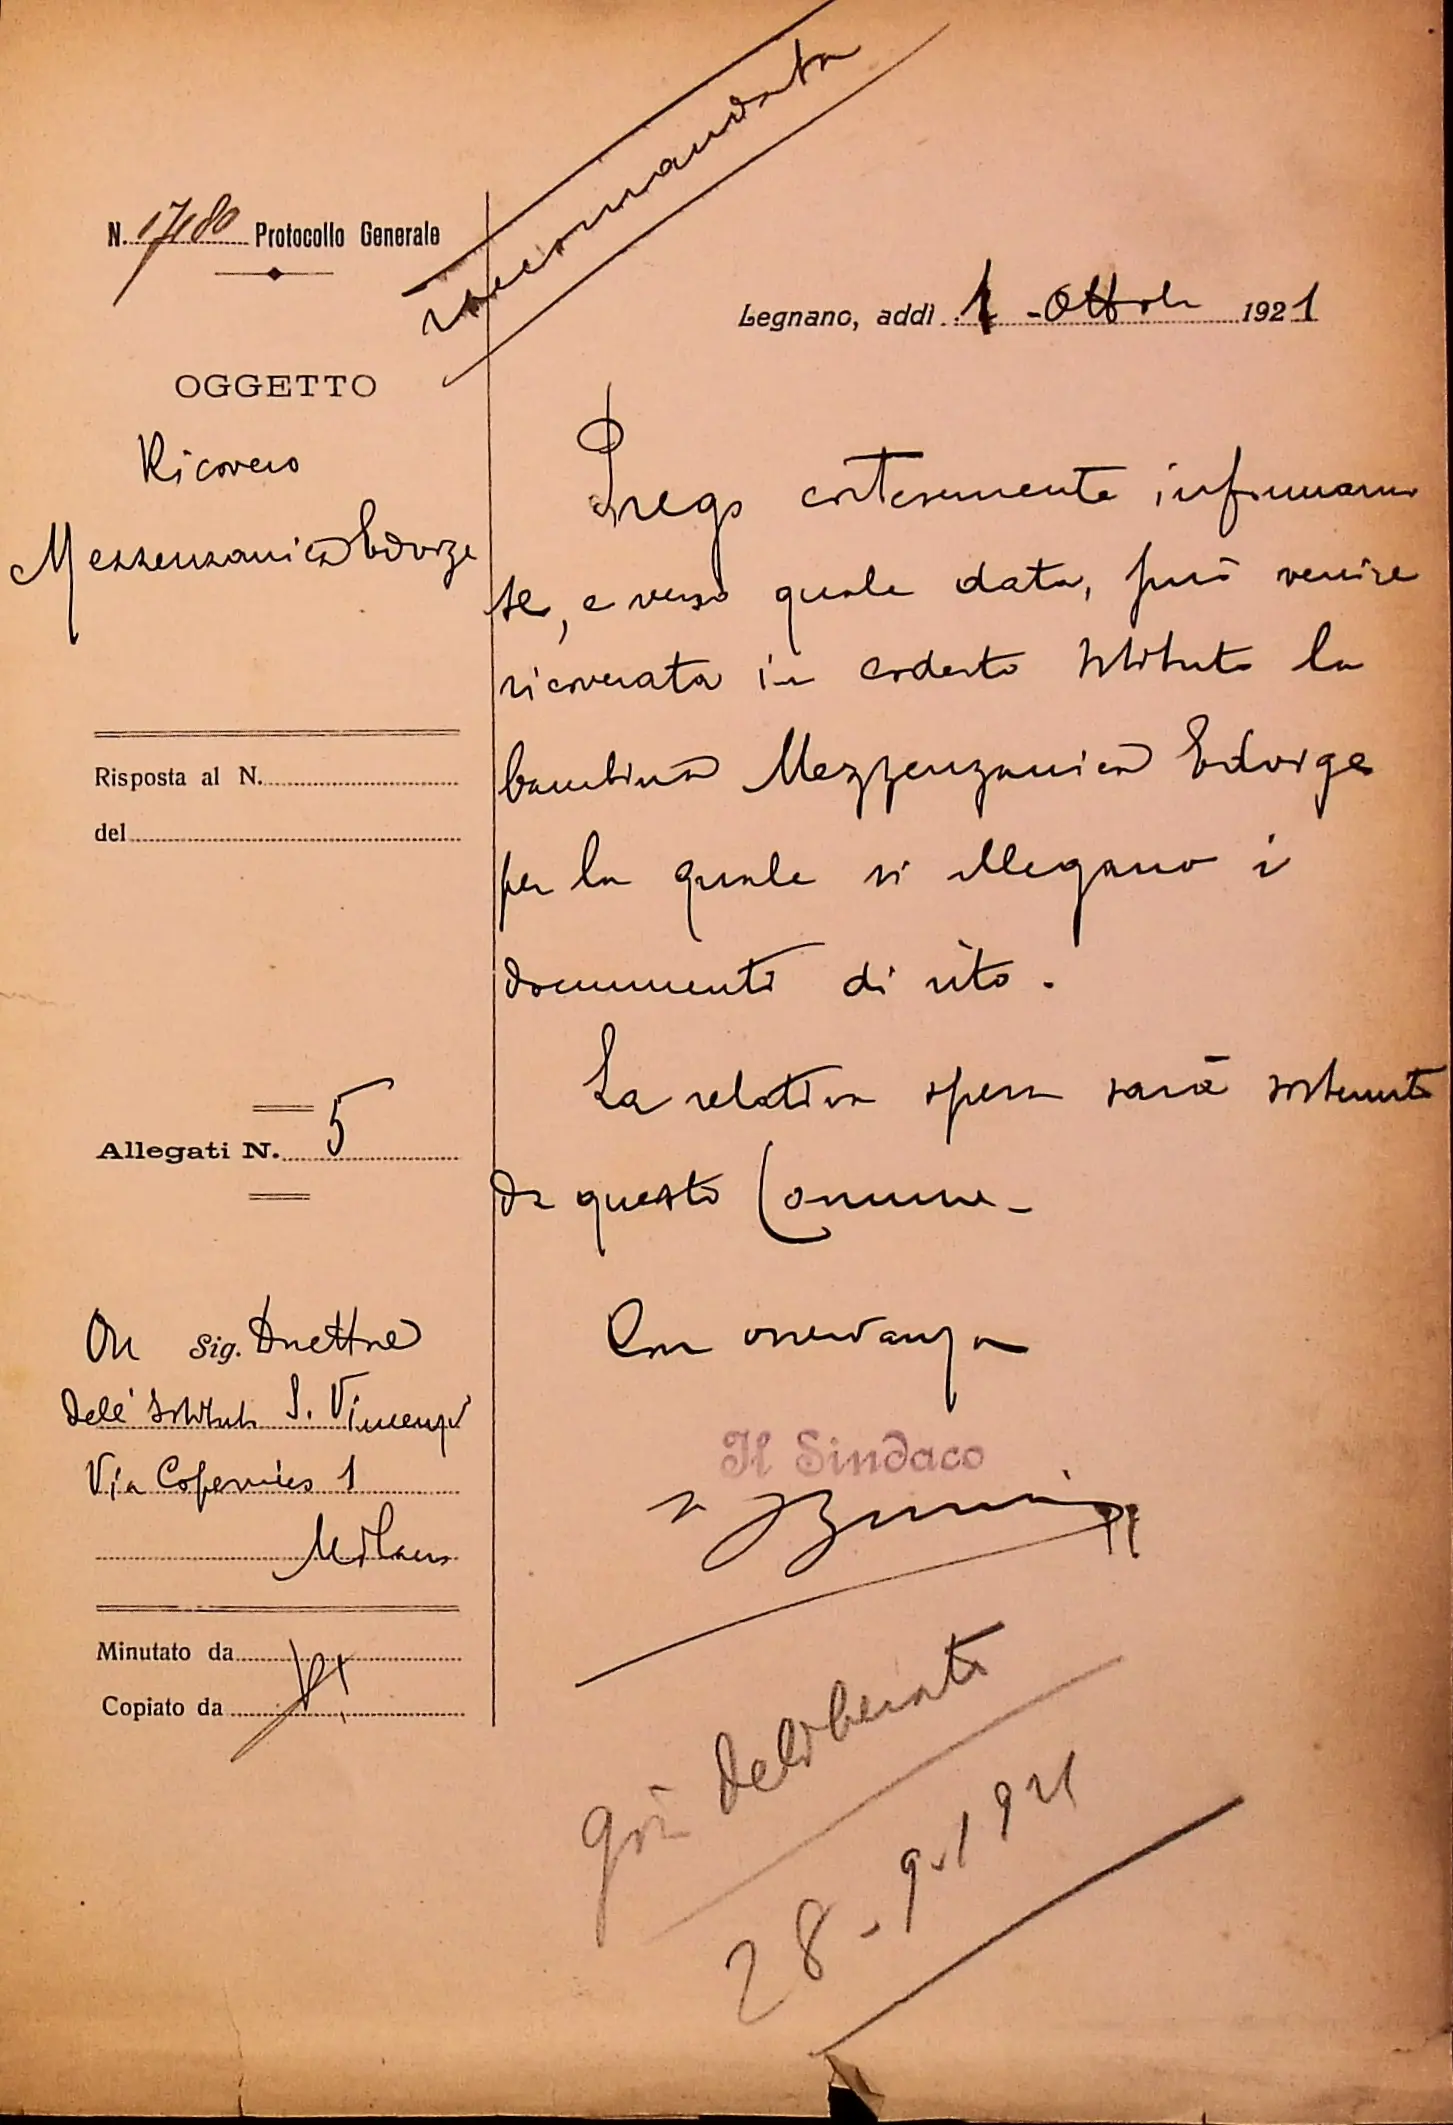 raccomandata
N. 17180 Protocollo Generale
Legnano, addì 1 - Ottobre 1921
OGGETTO
Ricovero
Mezzenzanica Edvige
Prego cortesemente informarmi
se, e verso quale data, può venire
ricoverata in codesto Istituto la
bambina Mezzenzanica Edvige
per la quale si allegano i
documenti di rito.
Risposta al N.
del
La relativa spesa sarà sostenuta
da questo Comune -
Allegati N. 5
Con osservanza
Il Sindaco
On Sig. Direttore
dell'Istituto S. Vincenzo
Via Copernico 1
Milano
Minutato da
Copiato da
già deliberato
28-9-1921